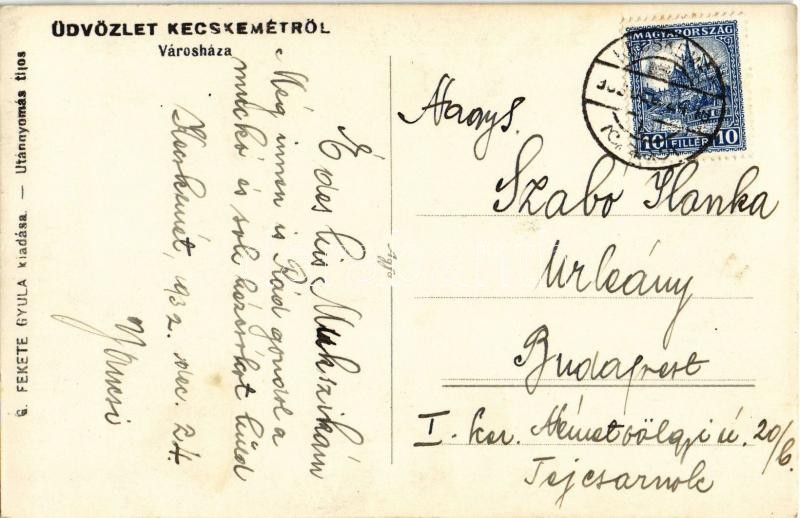 ÜDVÖZLET KECSKEMÉTRŐL
Városháza
G. FEKETE GYULA kiadása. — Utánnyomás tilos
Édes kis Mukszikám
Még innen is Rád gondol a
muckó és sok küld
Kecskemét, 932. dec. 24.
Jancsi
Agfa
MAGYARORSZÁG
10 FILLÉR 10
Nagys.
Szabo Ilonka
Urleány
Budapest
I. ker. Németvölgyi ú. 20/b.
Tejcsarnok